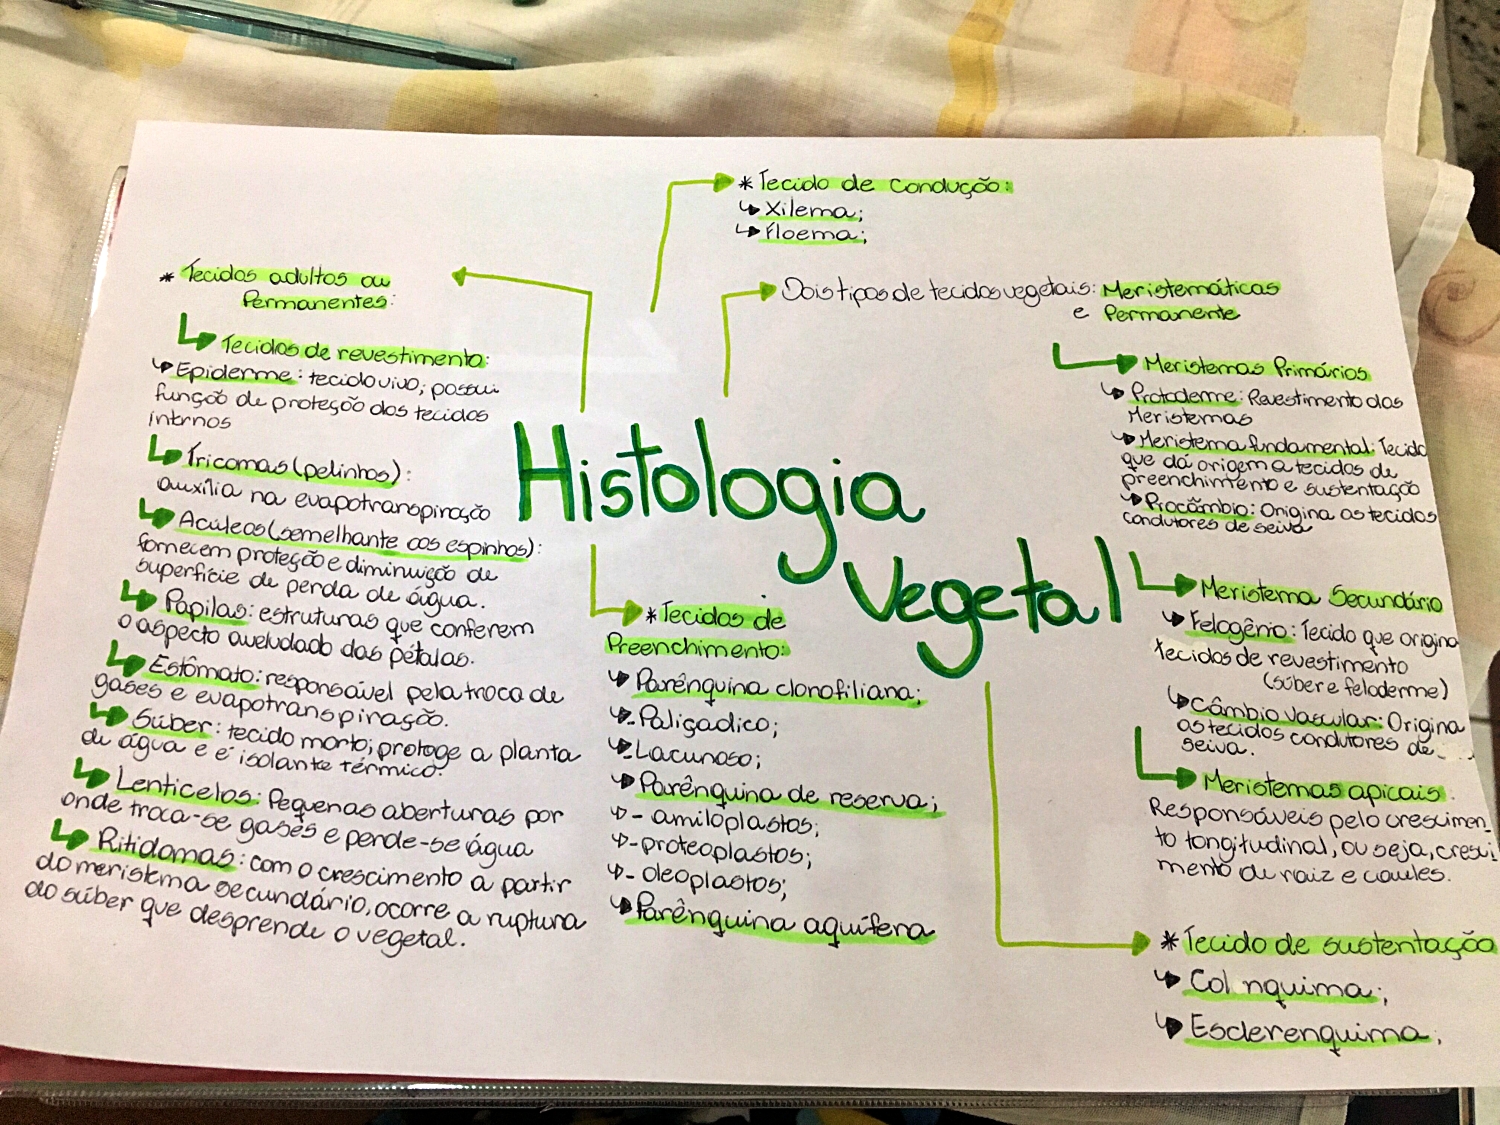 Histologia
Vegetal
* Tecido de condução:
Xilema;
Floema;
* Tecidos adultos ou
Permanentes:
Tecidos de revestimento:
Epiderme: tecido vivo; possui
função de proteção dos tecidos
internos
Tricomas (pelinhos):
auxília na evapotranspiração
Acúleos (semelhante aos espinhos):
fornecem proteção e diminuição de
superfície de perda de água.
Papilas: estruturas que conferem
o aspecto aveludado das pétalas.
Estômato: responsável pela troca de
gases e evapotranspiração.
Súber: tecido morto; protege a planta
de água e é isolante térmico.
Lenticelas: Pequenas aberturas por
onde troca-se gases e perde-se água
Ritidomas: com o crescimento a partir
do meristema secundário, ocorre a ruptura
do súber que desprende o vegetal.
Dois tipos de tecidos vegetais: Meristemáticas
e Permanente
Meristemas Primários
Protoderme: Revestimento dos
Meristemas
Meristema fundamental: Tecido
que dá origem a tecidos de
preenchimento e sustentação
Procâmbio: Origina os tecidos
condutores de seiva
Meristema Secundário
Felogênio: Tecido que origina
tecidos de revestimento
(súber e feloderme)
Câmbio vascular: Origina
os tecidos condutores de
seiva.
Meristemas apicais:
Responsáveis pelo crescimen-
to longitudinal, ou seja, cresci-
mento da raiz e caules.
* Tecidos de
Preenchimento:
Parênquina clonofiliana;
- Paliçadico;
- Lacunoso;
Parênquina de reserva;
- amiloplastos;
- proteoplastos;
- oleoplastos;
Parênquina aquífera
* Tecido de sustentação
Col nquima;
Esclerenquima;